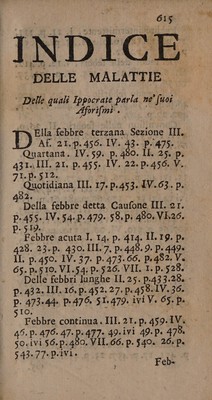 615
INDICE
DELLE MALATTIE
Delle quali Ippocrate parla ne' suoi
Aforismi.
DElla febbre terzana Sezione III.
Af. 21. p. 456. IV. 43. p. 475.
Quartana. IV. 59. p. 480. II. 25. p.
431. III. 21. p. 455. IV. 22. p. 456. V.
71. p. 512.
Quotidiana III. 17. p. 453. IV. 63. p.
482.
Della febbre detta Causone III. 21.
p. 455. IV. 54. p. 479. 58. p. 480. VI. 26.
p. 519.
Febbre acuta I. 14. p. 414. II. 19. p.
428. 23. p. 430. III. 7. p. 448. 9. p. 449.
II. p. 450. IV. 37. p. 473. 66. p. 482. V.
65. p. 510. VI. 54. p. 526. VII. 1. p. 528.
Delle febbri lunghe II. 25. p. 433. 28.
p. 432. III. 16. p. 452. 27. p. 458. IV. 36.
p. 473. 44. p. 476. 51. 479. ivi V. 65. p.
510.
Febbre continua. III. 21. p. 459. IV.
46. p. 476. 47. p. 477. 49. ivi 49. p. 478.
50. ivi 56. p. 480. VII. 66. p. 540. 26. p.
543. 77. p. ivi.
Feb-